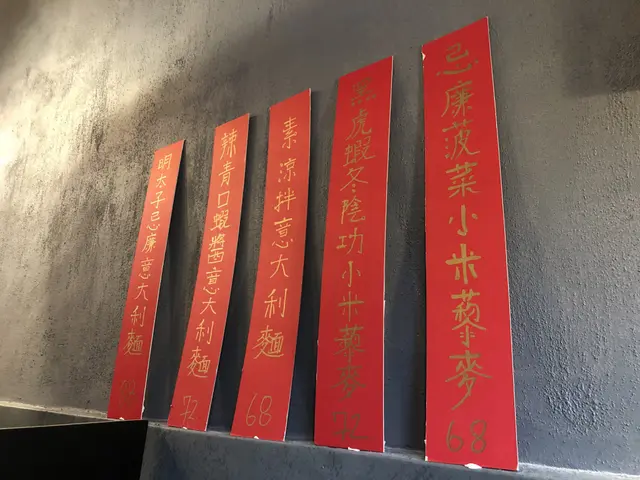 忌廉菠菜小米藜麥
68
黑虎蝦冬陰功小米藜麥
72
素涼拌意大利麵
68
辣青口蝦醬意大利麵
72
明太子忌廉意大利麵